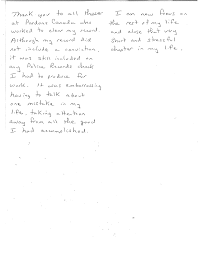 Thank you to all those
at Pardons Canada who
worked to clear my record.
Although my record did
not include a conviction,
it was still included on
my Police Records check
I had to produce for
work. It was embarrassing
having to talk about
one mistake in my
life, taking attention
away from all the good
I had accomplished.
I am now focus on
the rest of my life
and close that very
short and stressful
chapter in my life.